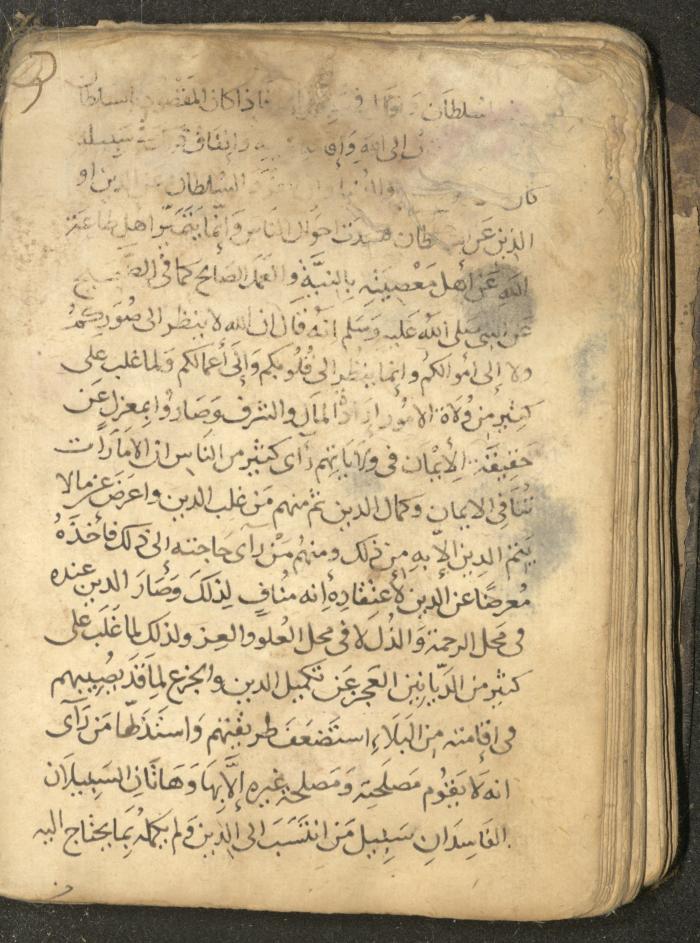 السلطان فاذا كان المقصود بالسلطان
الى الله وانفاق ذلك في سبيله
كان السلطان عن الدين او
الدين عن السلطان فسدت احوال الناس وَانّما يَتَمَيّز اهل طاعة
الله عَن أهل مَعْصِيَتِه بالنيَّة والعَمَل الصَالح كما في الصحيح
عَن النبي صلى الله عليه وَسَلم انّهُ قال ان الله لا ينظر الى صُوَركمُ
ولا إلى أموالكم وإنما ينظر الى قُلُوبكم وَإلَى أعمالكم وَلما غلب على
كثيرٍ من وُلَاة الامُور ارادة المال والشرف وَصَارُوا بمعزل عَن
حَقِيقَة الإيْمَان في ولاياتهم رَأى كثير من الناس ان الامَارَات
تُنَافي الايمان وكمال الدين ثم منهم مَن غلب الدين واعرَضَ عَن مالا
يتم الدين الاّ به من ذلك ومنهُم مَنْ رآى حَاجته الى ذلك فأخَذَهُ
مُعرضًا عن الدين لأعتقادِهِ انه مُنافٍ لِذلكَ وَصَارَ الدين عنده
في مَحل الرحمة وَالذُل لا في محل العُلو والعِز ولذلك لما غَلَبَ على
كثير من الدَيّانين العَجز عَن تكميل الدين والجزع لِمَا قَد يُصِيبهم
في إقامته مِن البَلاءِ استَضعَفَ طريقتهم وَاستَذَلّها مَن رَآى
انه لَا يَقوُم مَصلَحَته وَمَصلحة غيره إلّا بِهَا وَهَاتَانِ السَبِيلان
الفَاسِدَانِ سَبِيل مَن انتَسَبَ الى الدِين وَلم يكملهُ بِمَا يحتاج اليه